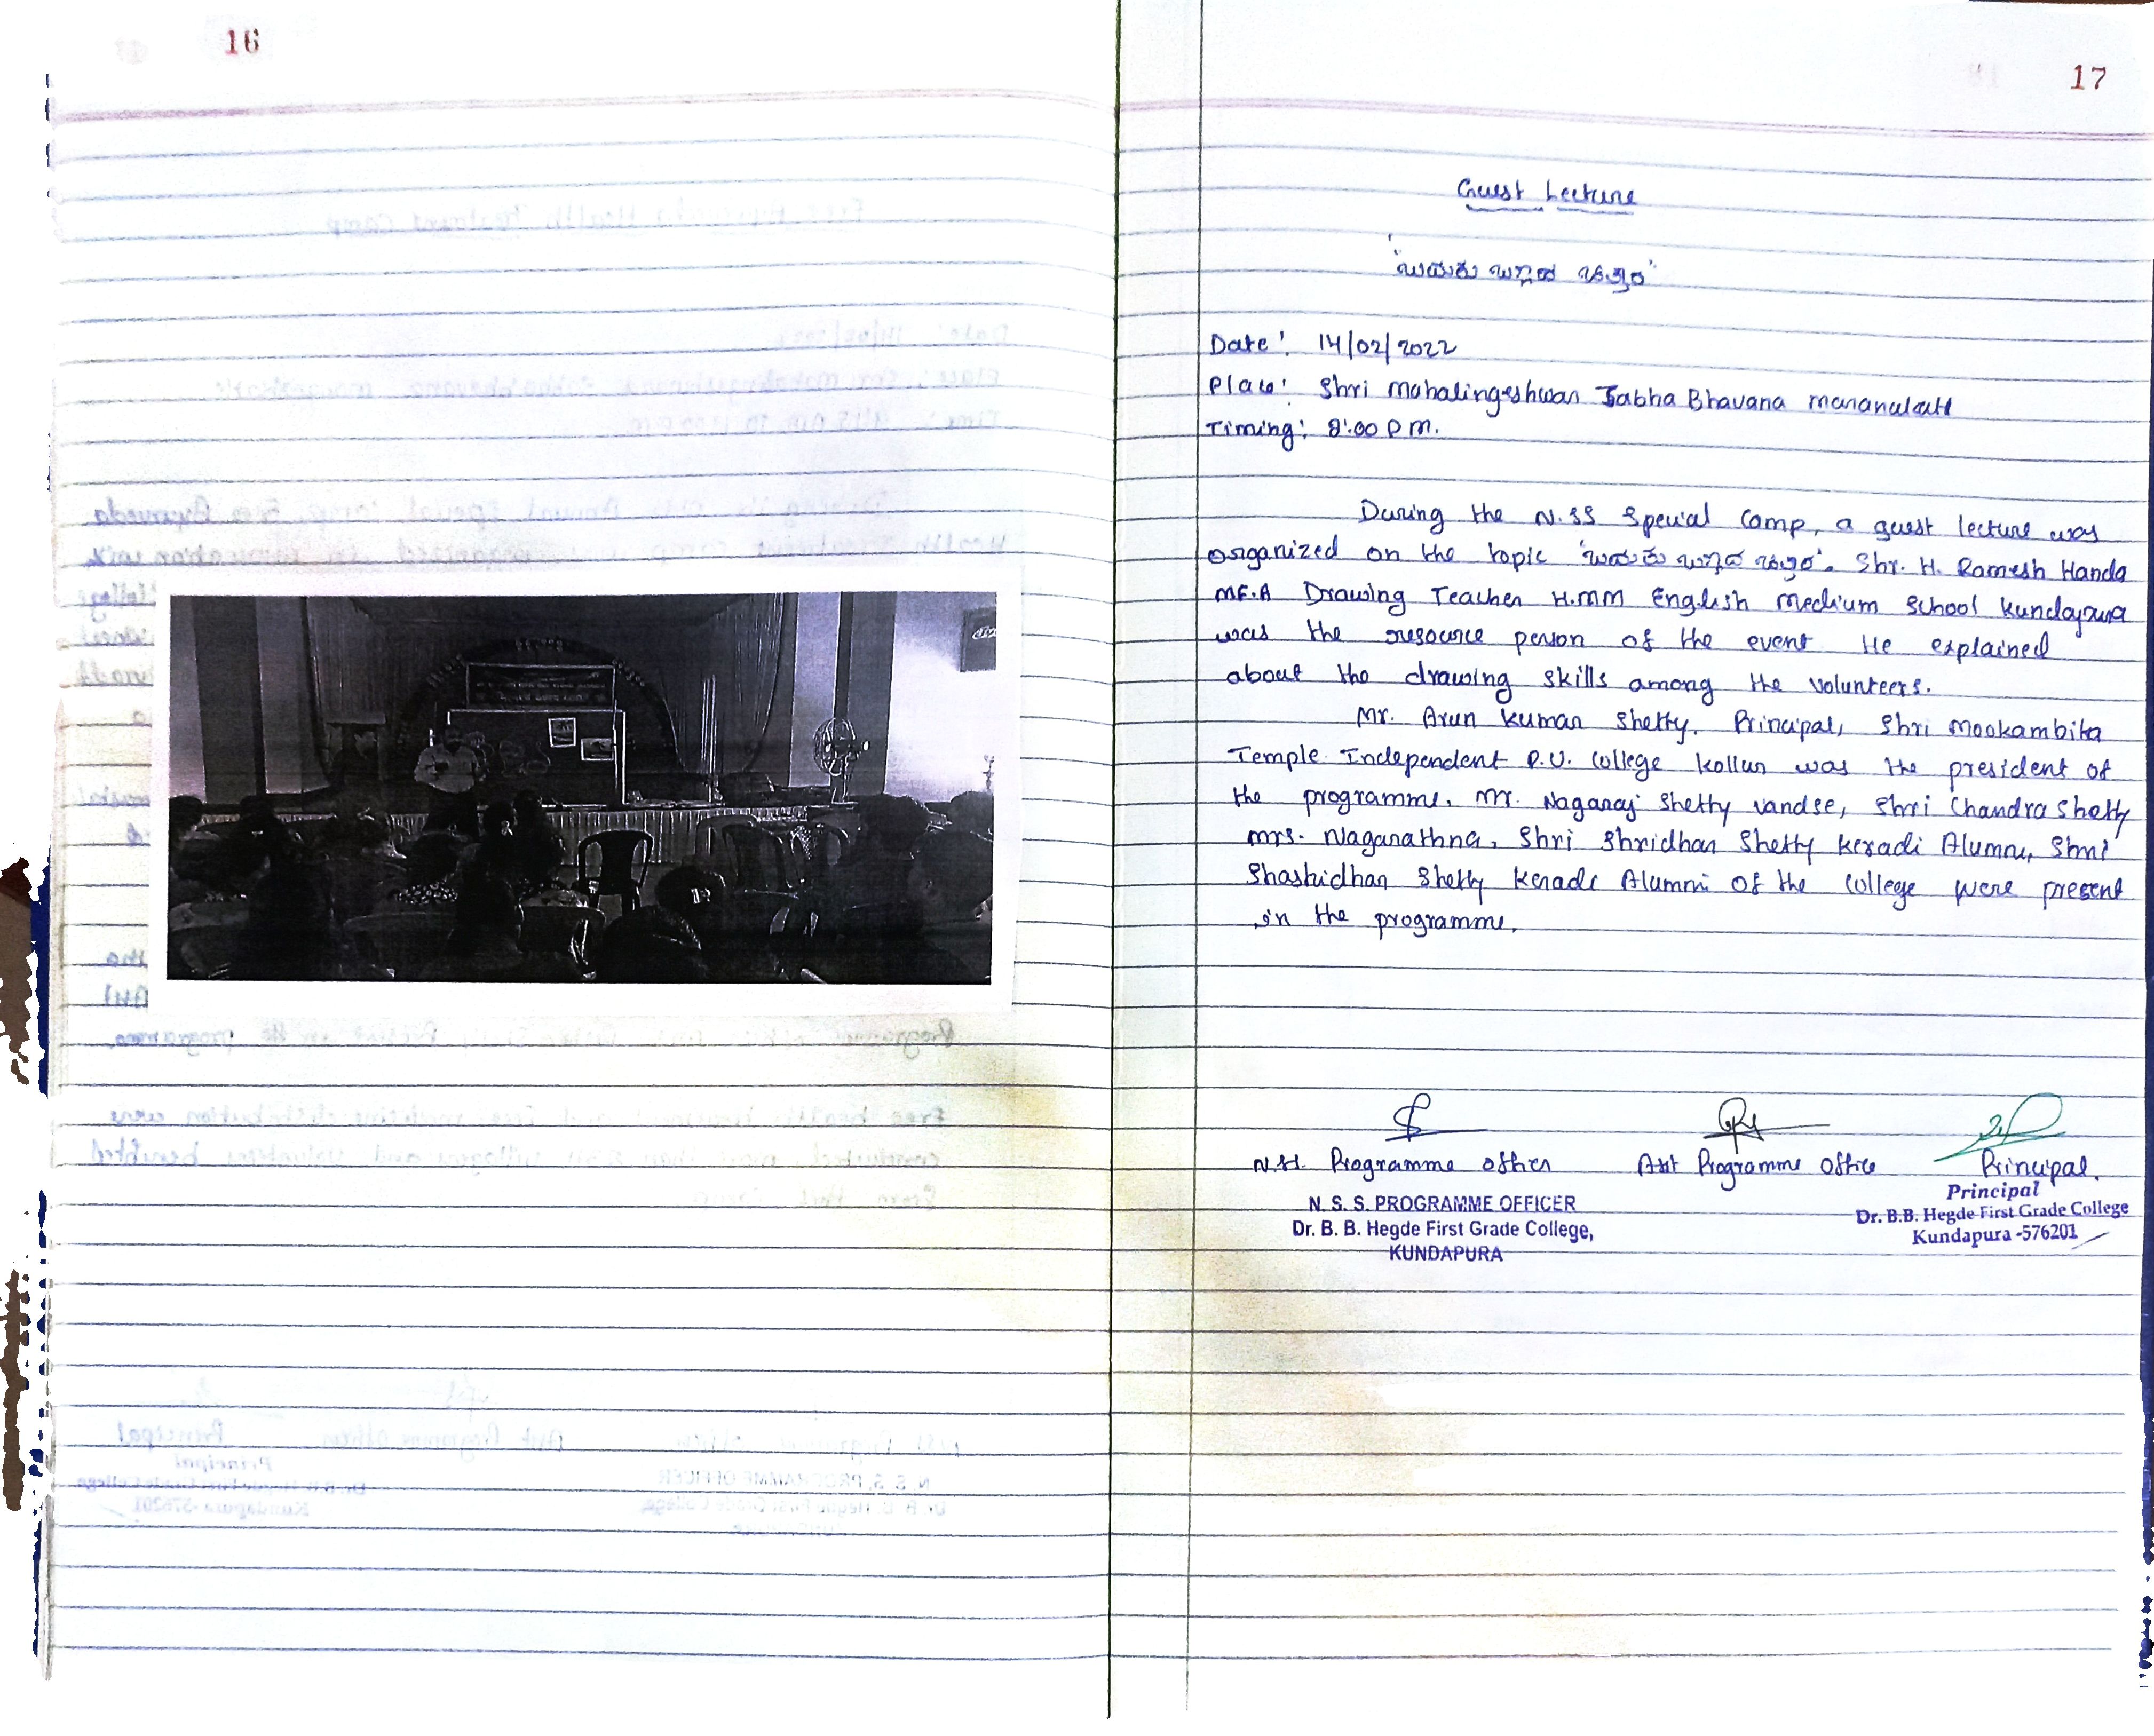 16
17
Guest Lecture
Date: 14/02/2022
Place: Shri Mahalingeshwar Sabha Bhavana
Timing: 8:00 P.M.
During the N.SS Special Camp, a guest lecture was
organized on the topic Shr. H. Ramesh Handa
MF.A Drawing Teacher H.MM English Medium School Kundapura
was the resource person of the event He explained
about the drawing skills among the volunteers.
Mr. Arun Kumar Shetty. Principal, Shri Mookambika
Temple Independent P.U. College Kollur was the president of
the programme. Mr. Nagaraj Shetty Vandse, Shri Chandra Shetty
Mrs. Nagarathna, Shri Shridhar Shetty Keradi Alumni, Shri
Shashidhar Shetty Keradi Alumni of the college were present
in the programme.
Programme Officer Programme Office Principal.
N. S. S. PROGRAMME OFFICER
Dr. B. B. Hegde First Grade College,
KUNDAPURA
Principal
Dr. B.B. Hegde First Grade College
Kundapura -576201